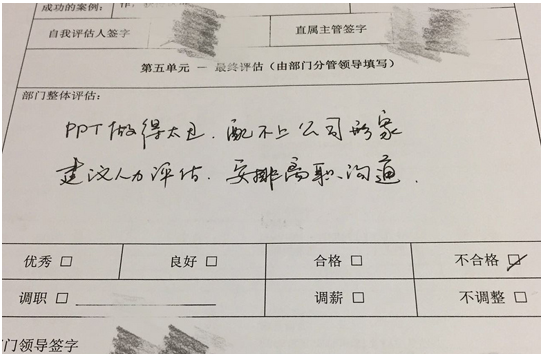 成功的案例：
自我评估人签字
直属主管签字
第五单元 — 最终评估（由部门分管领导填写）
部门整体评估：
PPT做得太丑，配不上公司形象
建议人力评估，安排离职沟通．
优秀 □ 良好 □ 合格 □ 不合格 ☑
调职 □ 调薪 □ 不调整 □
门领导签字